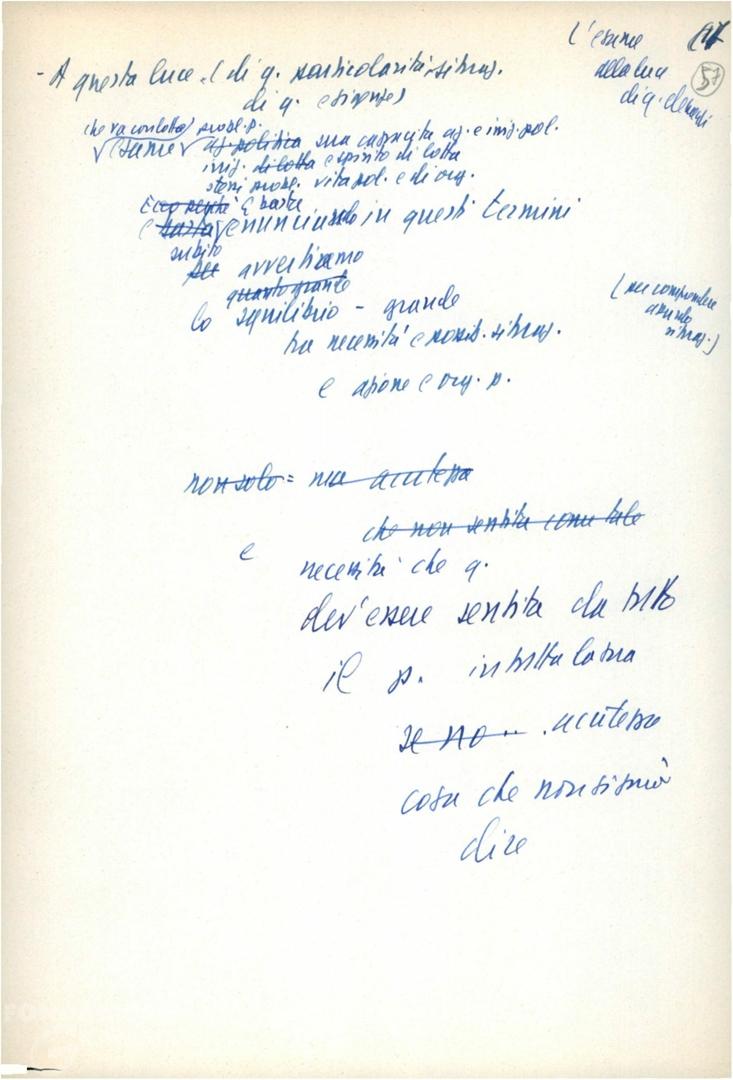 L'esame
alla luce
di q. elementi
57
- A questa luce (di q. particolarità situaz.
di q. esigenze)
(che va condotto) probl. p.
esame az. politica sua capacità az. e iniz. pol.
iniz. di lotta e spirito di lotta
stessi probl. vita pol. e di org.
E basta
e basta enunciando in questi termini
subito
avvertiamo
quanto grande
lo squilibrio - grande
(per comprendere
situaz.)
tra necessità e possib. situaz.
e azione e org. p.
non solo = sua acutezza
che non sentita come tale
e
necessità che q.
dev'essere sentita da tutto
il p. in tutta la sua
se no... acutezza
cosa che non si può
dire